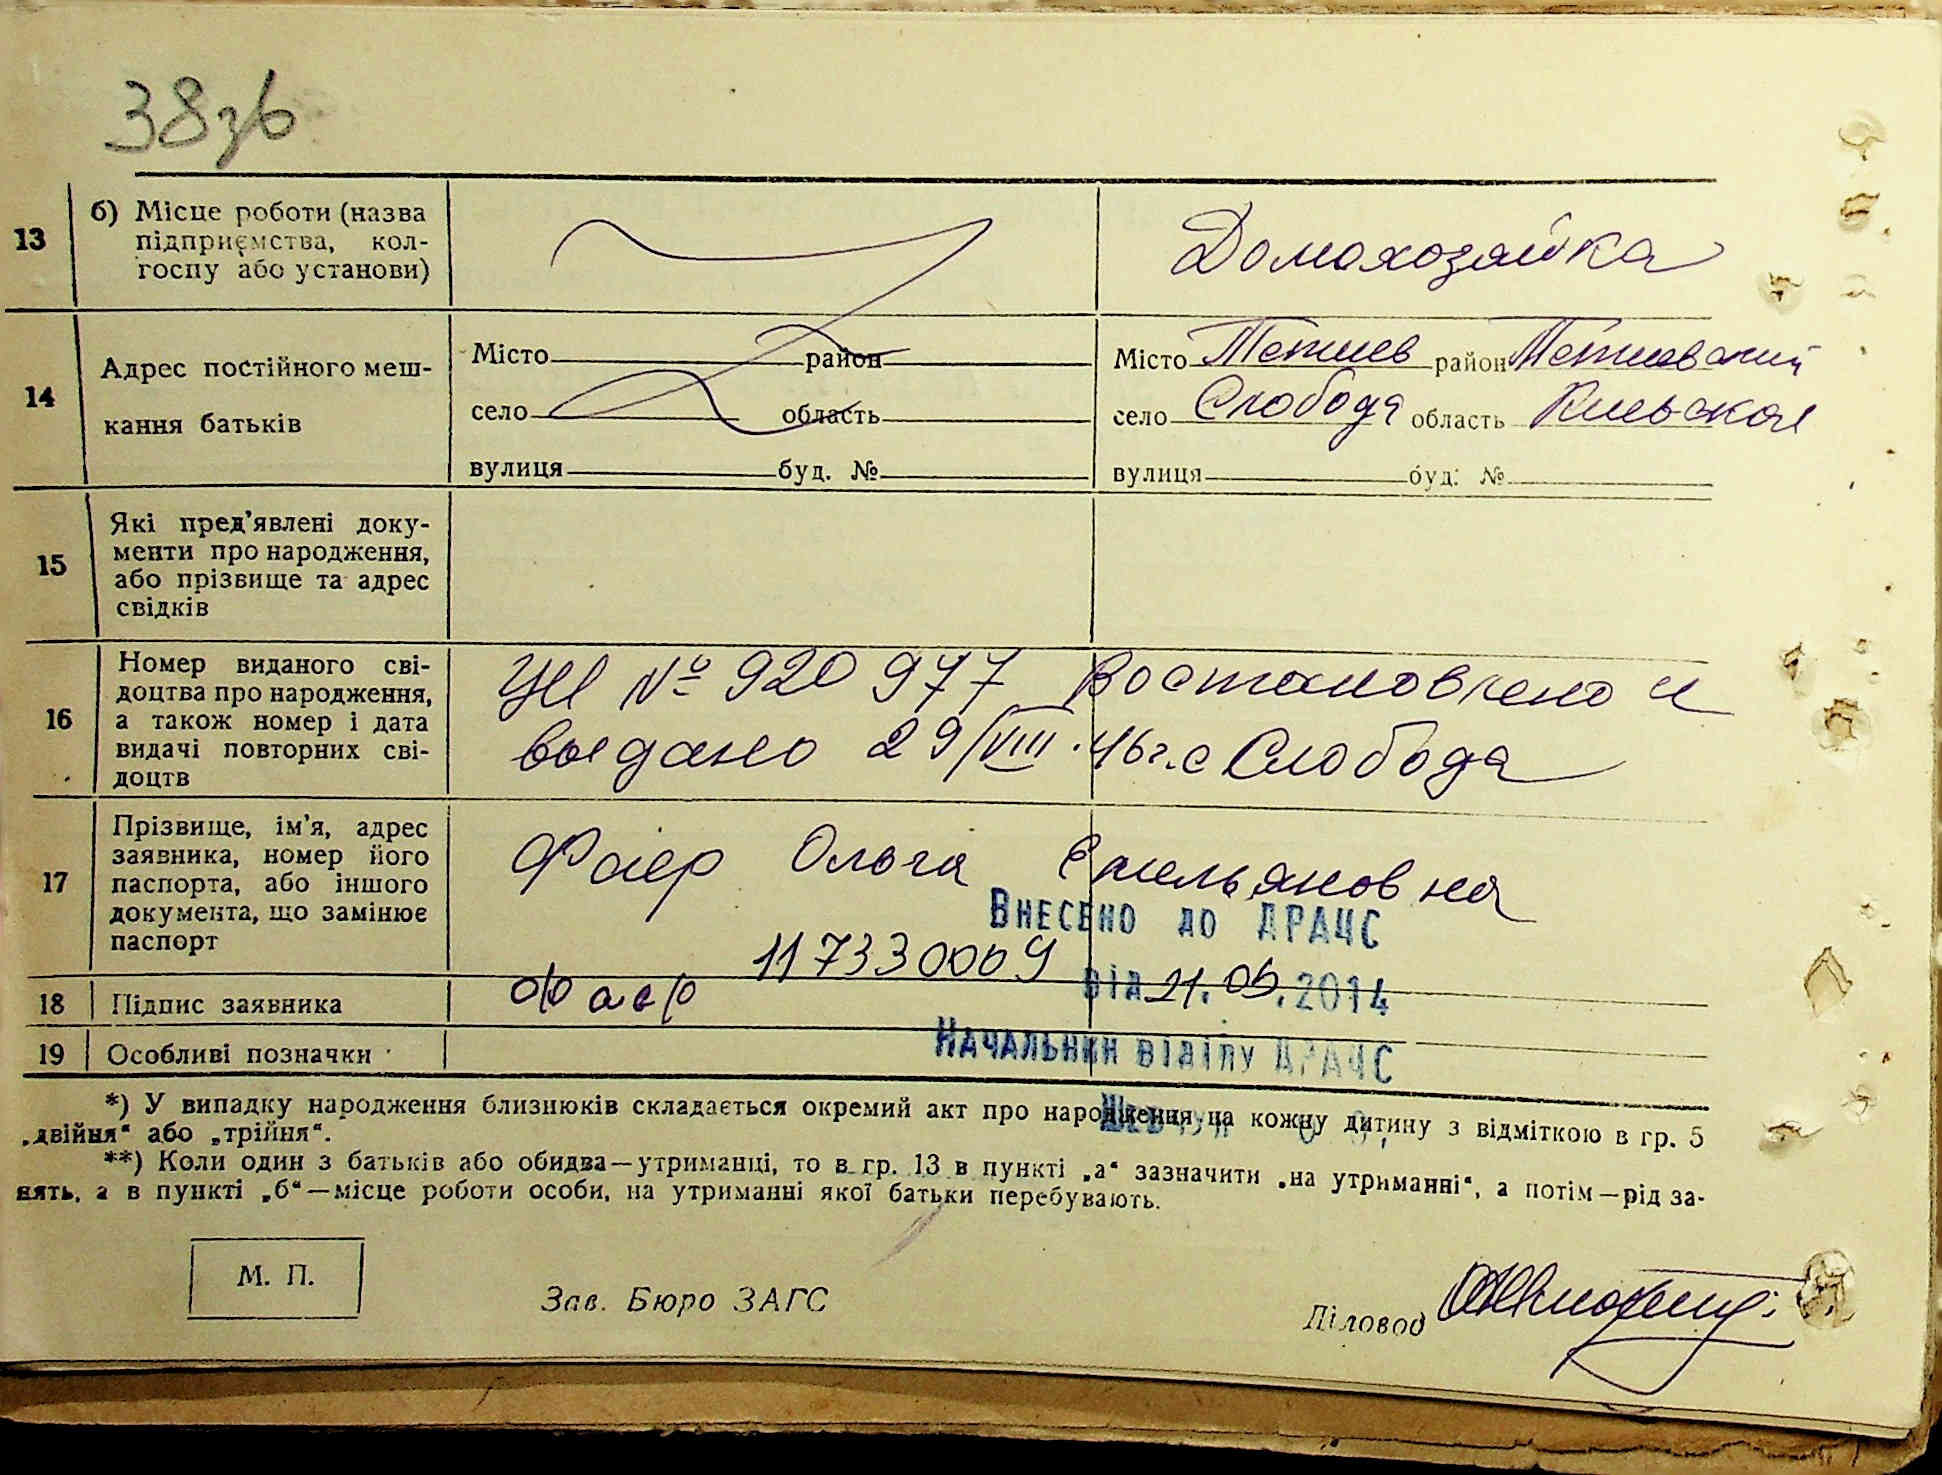 38зв
13
б) Місце роботи (назва
підприємства, кол-
госпу або установи)
Домохозяйка
14
Адрес постійного меш-
кання батьків
Місто район
село область
вулиця буд. №
Місто Тетиев район Тетиевский
село Слобода область Киевская
вулиця буд. №
15
Які пред'явлені доку-
менти про народження,
або прізвище та адрес
свідків
16
Номер виданого сві-
доцтва про народження,
а також номер і дата
видачі повторних сві-
доцтв
№ 920977 Востановлено и
выдано 29/VIII.46г. с Слобода
17
Прізвище, ім'я, адрес
заявника, номер його
паспорта, або іншого
документа, що замінює
паспорт
Фаер Ольга Емельяновна
Внесено до ДРАЦС
11733 0009
18
Підпис заявника
Фаер
від 21.05.2014
19
Особливі позначки
Начальник відділу ДРАЦС
*) У випадку народження близнюків складається окремий акт про народження на кожну дитину з відміткою в гр. 5
„двійня“ або „трійня“.
**) Коли один з батьків або обидва—утриманці, то в гр. 13 в пункті „а“ зазначити „на утриманні“, а потім—рід за-
нять, а в пункті „б“—місце роботи особи, на утриманні якої батьки перебувають.
М. П.
Зав. Бюро ЗАГС
Діловод